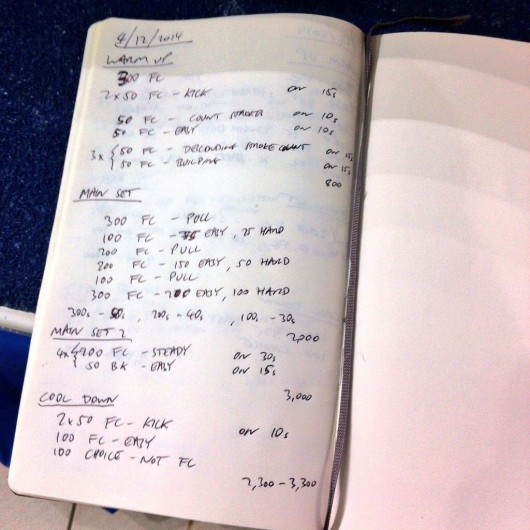 9/12/2014
WARM UP
300 FC
2x50 FC - KICK on 15s
50 FC - COUNT STROKES on 10s
50 FC - EASY on 10s
3x { 50 FC - DESCENDING STROKE COUNT on 15s
50 FC - BUILDING on 15s
800
MAIN SET
300 FC - PULL
100 FC - 75 EASY, 25 HARD
200 FC - PULL
200 FC - 150 EASY, 50 HARD
100 FC - PULL
300 FC - 200 EASY, 100 HARD
300s - 50s, 200s - 40s, 100s - 30s
2,000
MAIN SET 2
4x { 200 FC - STEADY on 30s
50 BK - EASY on 15s
3,000
COOL DOWN
2x50 FC - KICK on 10s
100 FC - EASY
100 CHOICE - NOT FC
2,300 - 3,300